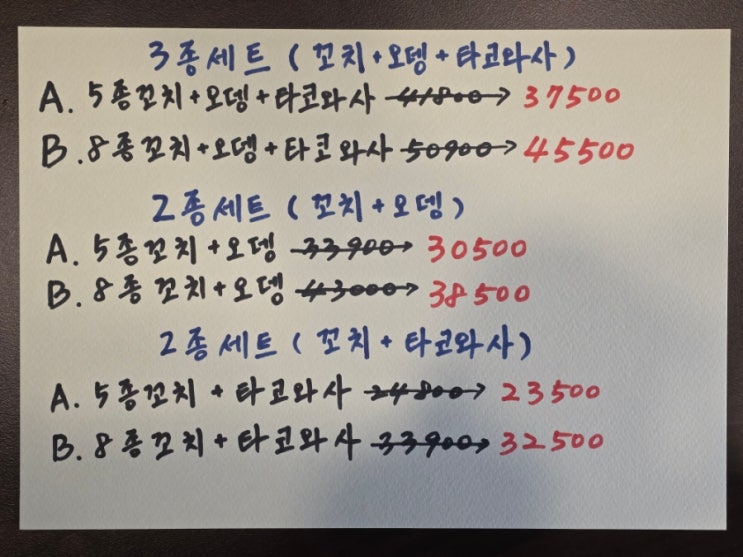 3종세트 (꼬치+오뎅+타코와사)
A. 5종꼬치+오뎅+타코와사 41800→ 37500
B. 8종꼬치+오뎅+타코와사 50900→ 45500
2종세트 (꼬치+오뎅)
A. 5종꼬치+오뎅 33900→ 30500
B. 8종꼬치+오뎅 43000→ 38500
2종세트 (꼬치+타코와사)
A. 5종꼬치+타코와사 24800→ 23500
B. 8종꼬치+타코와사 33900→ 32500